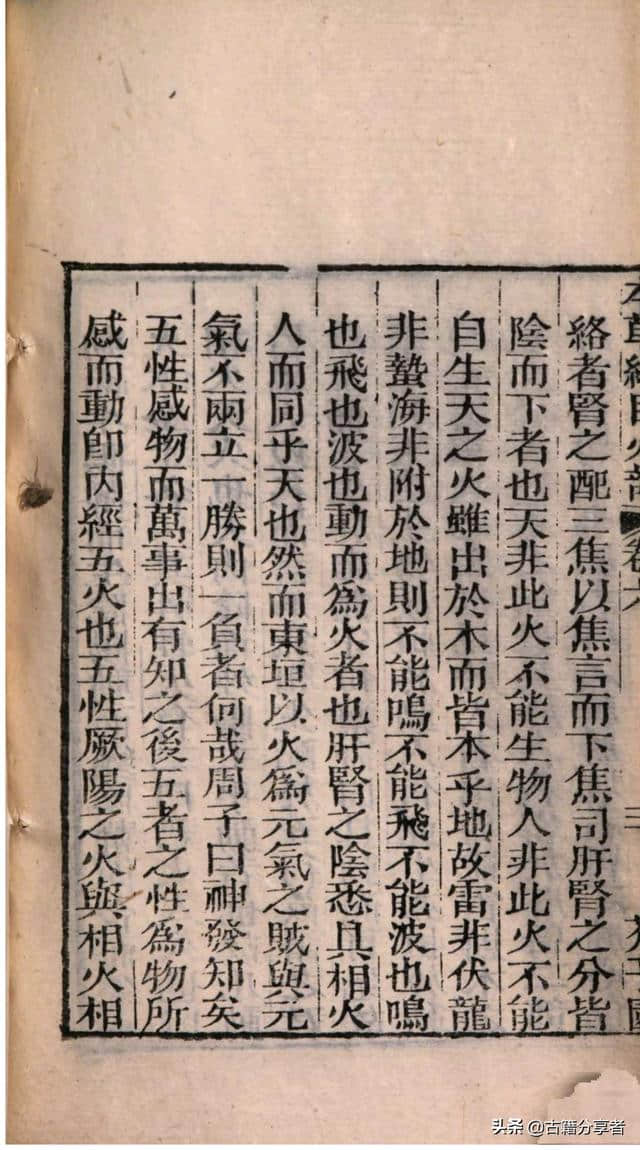 絡者腎之配三焦以焦言而下焦司肝腎之分皆
陰而下者也天非此火不能生物人非此火不能
自生天之火雖出於木而皆本乎地故雷非伏龍
非蟄海非附於地則不能鳴不能飛不能波也鳴
也飛也波也動而爲火者也肝腎之陰悉具相火
人而同乎天也然而東垣以火爲元氣之賊與元
氣不兩立一勝則一負者何哉周子曰神發知矣
五性感物而萬事出有知之後五者之性爲物所
感而動卽内經五火也五性厥陽之火與相火相
头条 @古籍分享者